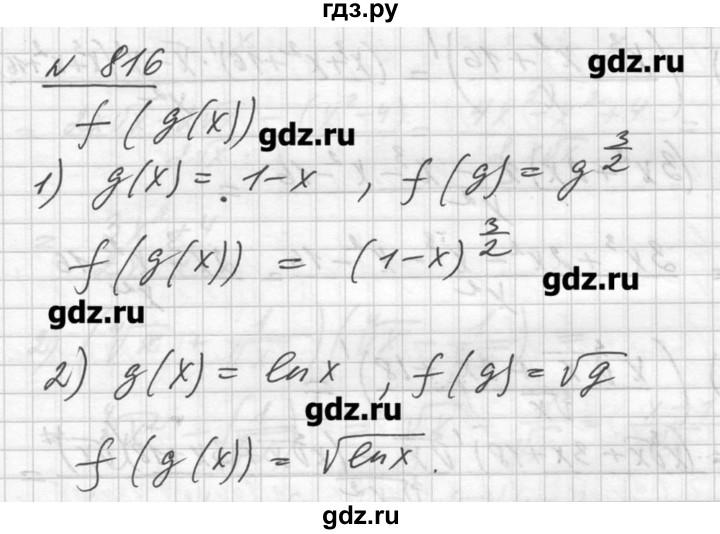 гдз.ру
№ 816
gdz.ru
f(g(x))
gdz.ru
1) g(x) = 1-x , f(g) = g^(3/2)
f(g(x)) = (1-x)^(3/2)
gdz.ru
gdz.ru
2) g(x) = ln x , f(g) = √g
gdz.ru
f(g(x)) = √ln x.
gdz.ru